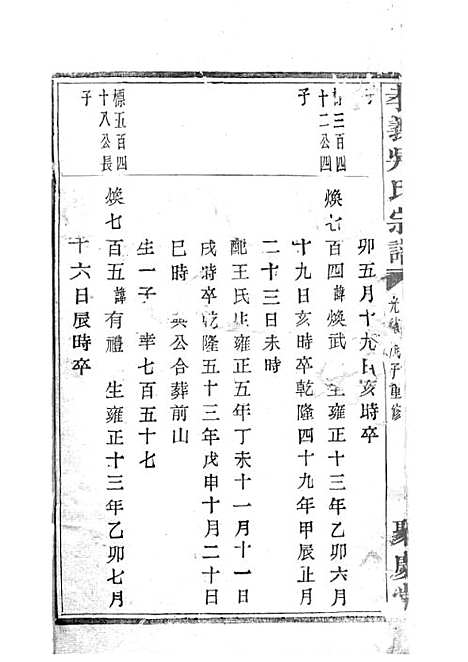 孝義吳氏宗譜
光緒庚子重修
聚慶堂
子
卯五月十九日亥時卒
三百四
十二公四
子
煥七百四諱煥武 生雍正十三年乙卯六月
十九日亥時卒乾隆四十九年甲辰正月
二十三日未時
配王氏生雍正五年丁未十一月十一日
戌時卒乾隆五十三年戊申十月二十日
巳時 與公合葬前山
生一子 幸七百五十七
標五百四
十八公長
子
煥七百五諱有禮 生雍正十三年乙卯七月
十六日辰時卒